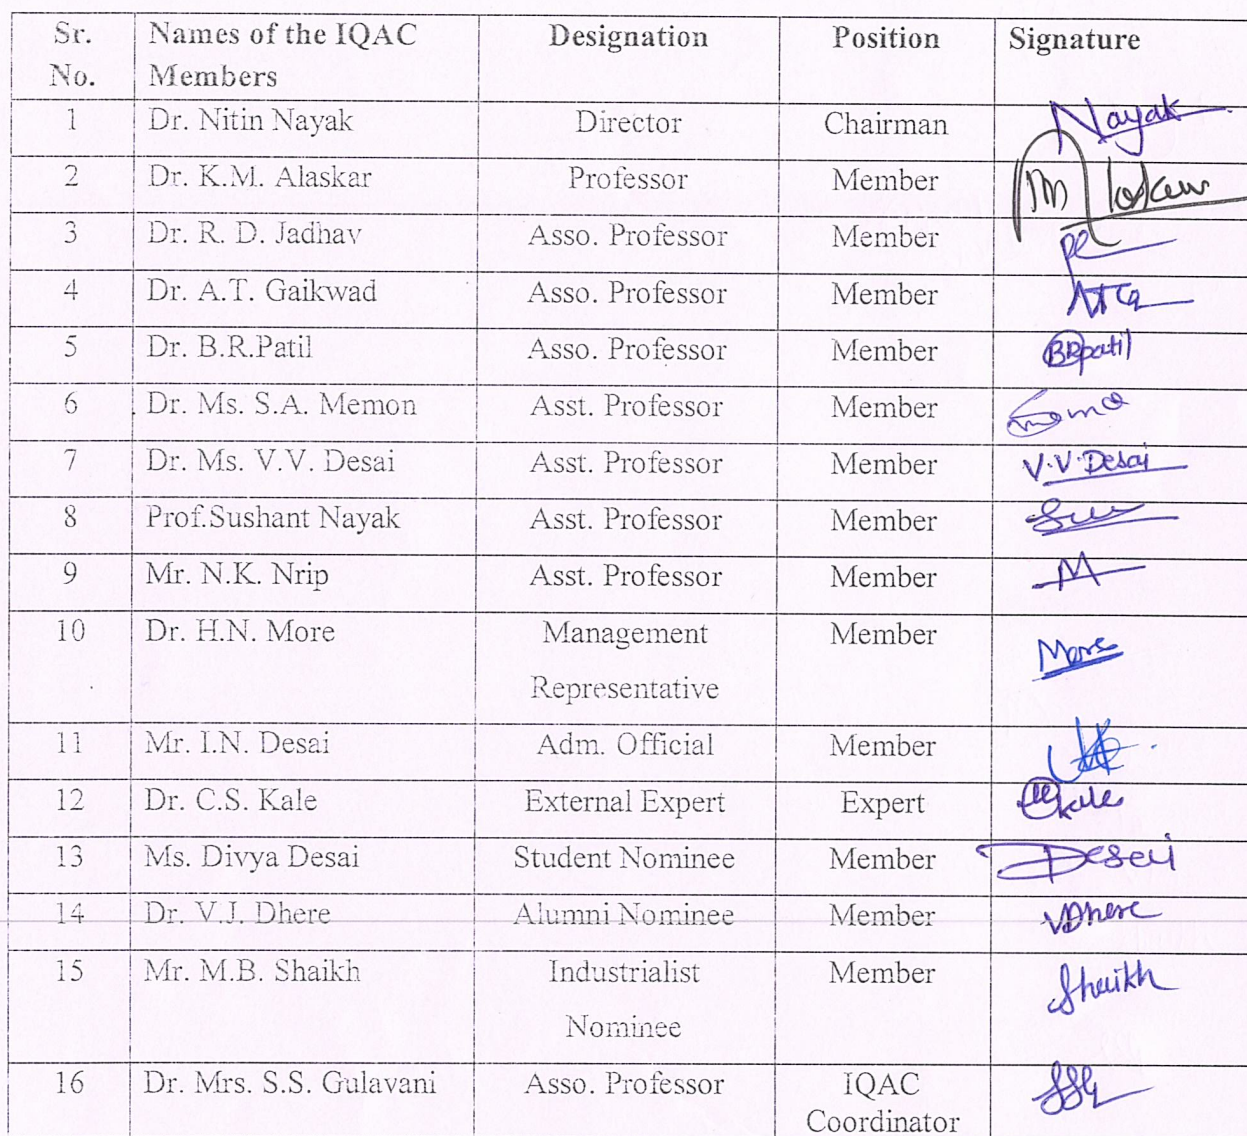 Sr. Names of the IQAC Designation Position Signature
No. Members
1 Dr. Nitin Nayak Director Chairman Nayak
2 Dr. K.M. Alaskar Professor Member
3 Dr. R. D. Jadhav Asso. Professor Member
4 Dr. A.T. Gaikwad Asso. Professor Member
5 Dr. B.R.Patil Asso. Professor Member BRpatil
6 Dr. Ms. S.A. Memon Asst. Professor Member
7 Dr. Ms. V.V. Desai Asst. Professor Member V.V.Desai
8 Prof.Sushant Nayak Asst. Professor Member
9 Mr. N.K. Nrip Asst. Professor Member
10 Dr. H.N. More Management Member More
Representative
11 Mr. I.N. Desai Adm. Official Member
12 Dr. C.S. Kale External Expert Expert Kale
13 Ms. Divya Desai Student Nominee Member Desai
14 Dr. V.J. Dhere Alumni Nominee Member VDhere
15 Mr. M.B. Shaikh Industrialist Member Shaikh
Nominee
16 Dr. Mrs. S.S. Gulavani Asso. Professor IQAC
Coordinator